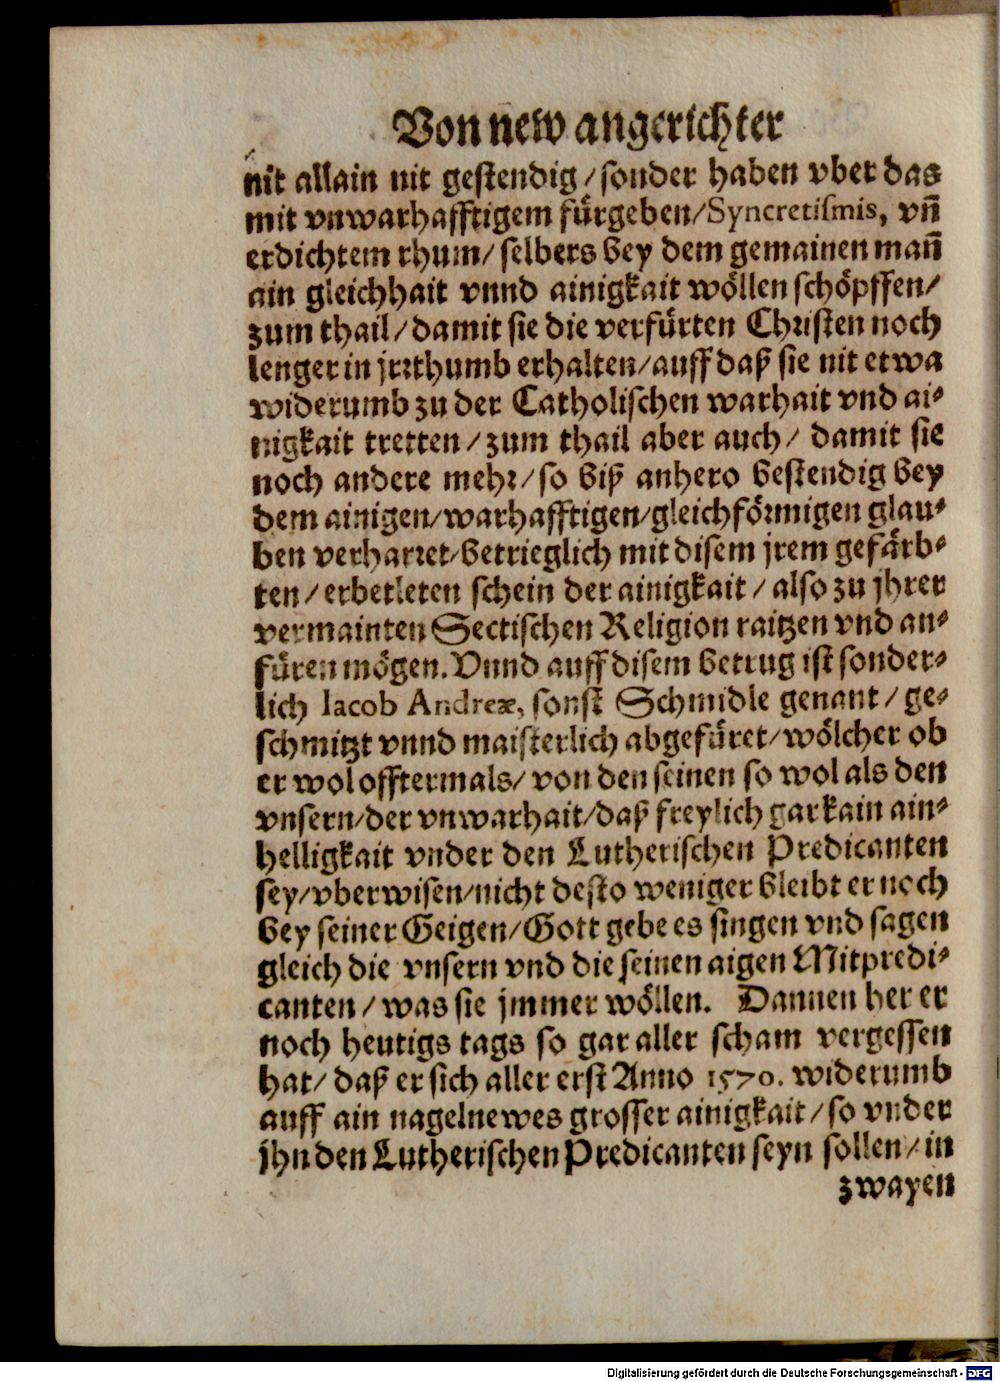 Von new angerichter
nit allain nit gestendig / sonder haben vber das
mit vnwarhafftigem fürgeben/Syncretismis, vñ
erdichtem rhum/ selbers bey dem gemainen mañ
ain gleichhait vnnd ainigkait wöllen schöpffen/
zum thail/damit sie die verfürten Christen noch
lenger in jrrthumb erhalten/auff daß sie nit etwa
widerumb zu der Catholischen warhait vnd ai-
nigkait tretten / zum thail aber auch / damit sie
noch andere mehr/so biß anhero bestendig bey
dem ainigen/warhafftigen/gleichförmigen glau-
ben verharret/betrieglich mit disem jrem gefärb-
ten / erbetleten schein der ainigkait / also zu jhrer
vermainten Sectischen Religion raitzen vnd an-
füren mögen. Vnnd auff disem betrug ist sonder-
lich Iacob Andreæ, sonst Schmidle genant / ge-
schmitzt vnnd maisterlich abgefüret/wölcher ob
er wol offtermals/ von den seinen so wol als den
vnsern/der vnwarhait/daß freylich gar kain ain-
helligkait vnder den Lutherischen Predicanten
sey/vberwisen/nicht desto weniger bleibt er noch
bey seiner Geigen/Gott gebe es singen vnd sagen
gleich die vnsern vnd die seinen aigen Mitpredi-
canten / was sie jmmer wöllen. Dannen her er
noch heutigs tags so gar aller scham vergessen
hat/ daß er sich aller erst Anno 1570. widerumb
auff ain nagelnewes grosser ainigkait/so vnder
jhn den Lutherischen Predicanten seyn sollen/in
zwayen
Digitalisierung gefördert durch die Deutsche Forschungsgemeinschaft - DFG